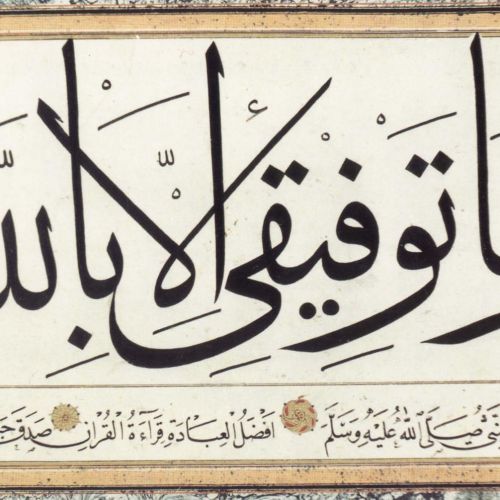 توفيقى إلا بالله
صَلَّى اللهُ عَلَيْهِ وَسَلَّمَ اَفْضَلُ الْعِبَادَةِ قِرَاءَةُ الْقُرْاٰنِ صَدَقَ